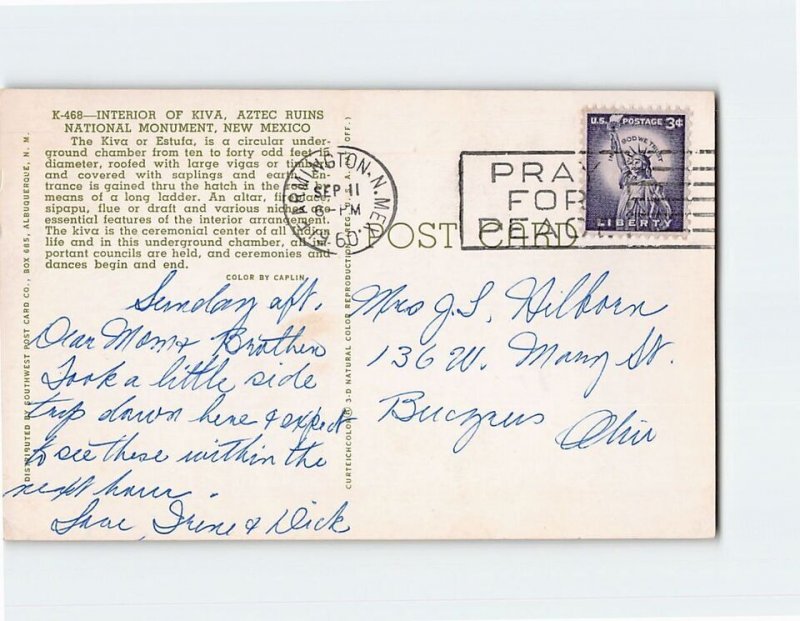 K-468—INTERIOR OF KIVA, AZTEC RUINS
NATIONAL MONUMENT, NEW MEXICO
The Kiva or Estufa, is a circular under-
ground chamber from ten to forty odd feet in
diameter, roofed with large vigas or timbers
and covered with saplings and earth. En-
trance is gained thru the hatch in the roof by
means of a long ladder. An altar, fireplace,
sipapu, flue or draft and various niches are
essential features of the interior arrangement.
The kiva is the ceremonial center of all Indian
life and in this underground chamber, all im-
portant councils are held, and ceremonies and
dances begin and end.
COLOR BY CAPLIN
DISTRIBUTED BY SOUTHWEST POST CARD CO., BOX 685, ALBUQUERQUE, N. M.
CURTEICHCOLOR® 3-D NATURAL COLOR REPRODUCTION (REG. U.S.A. PAT. OFF.)
FARMINGTON, N. MEX.
SEP 11
6-PM
1960
PRAY
FOR
PEACE
U.S. POSTAGE 3¢
IN GOD WE TRUST
LIBERTY
POST CARD
Sunday aft.
Dear Mom & Brother
Took a little side
trip down here & expect
to see these within the
next hour.
Love, Irene & Dick
Mrs J. S. Hilborn
136 W. Mary St.
Bucyrus
Ohio